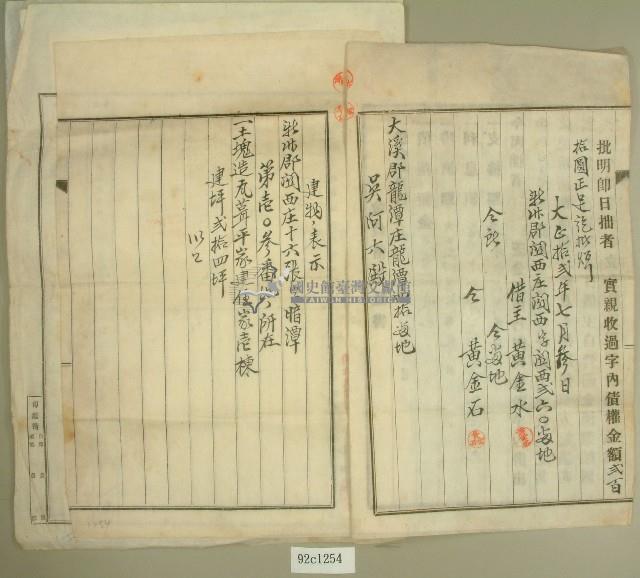 批明即日拙者 實親收過字內債權金額弐百
拾圓正足訖批炤
大正拾弐年七月參日
新竹郡關西庄關西字關西弐六〇番地
借主 黃金水
仝所 仝番地
仝 黃金石
大溪郡龍潭庄龍潭 拾番地
吳阿大殿
建物ノ表示
新竹郡關西庄十六張 暗潭
第壱〇參番 所在
一土塊造瓦葺平家建住家壱棟
建坪弐拾四坪
以上
國史館臺灣文獻館
TAIWAN HISTORICA
92c1254